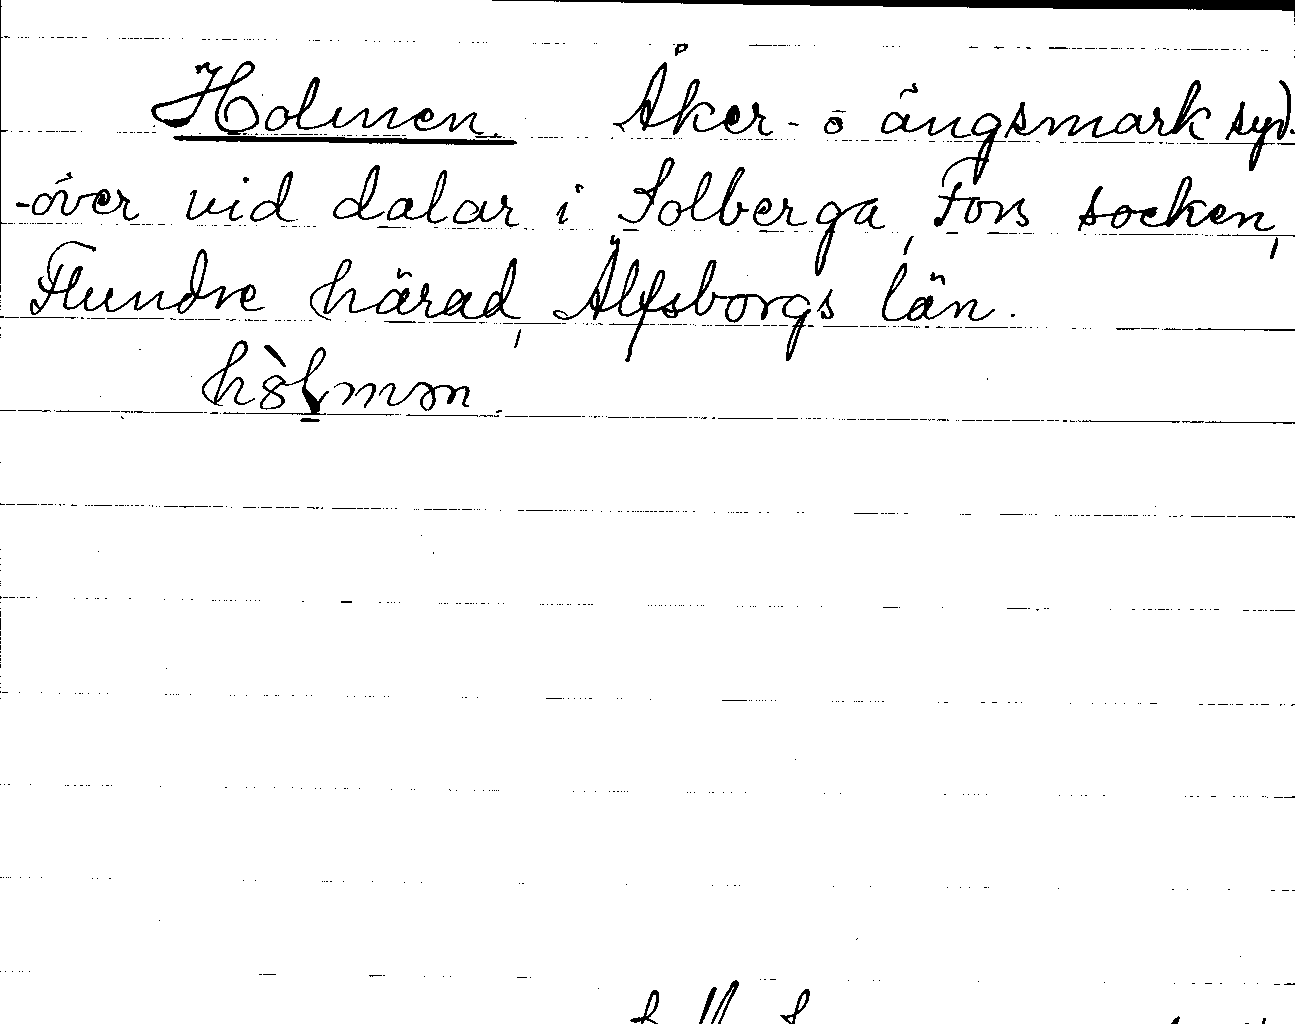 Holmen. Åker- o ängsmark syd-
-över vid dalar i Solberga, Fors socken,
Flundre härad, Älfsborgs län.
hòlmən.